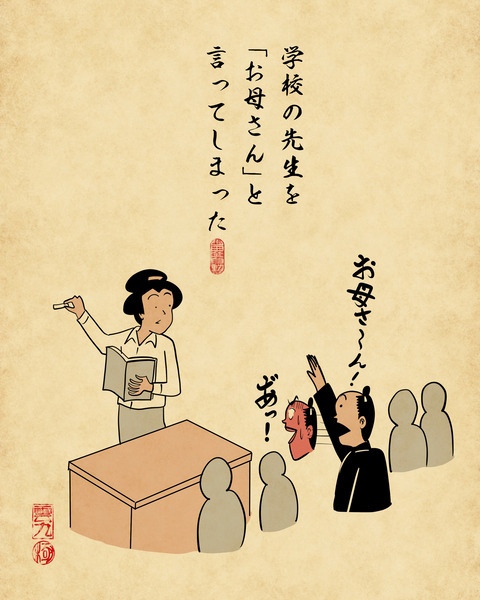 学校の先生を
「お母さん」と
言ってしまった
お母さ〜〜ん!
あ゛っ!